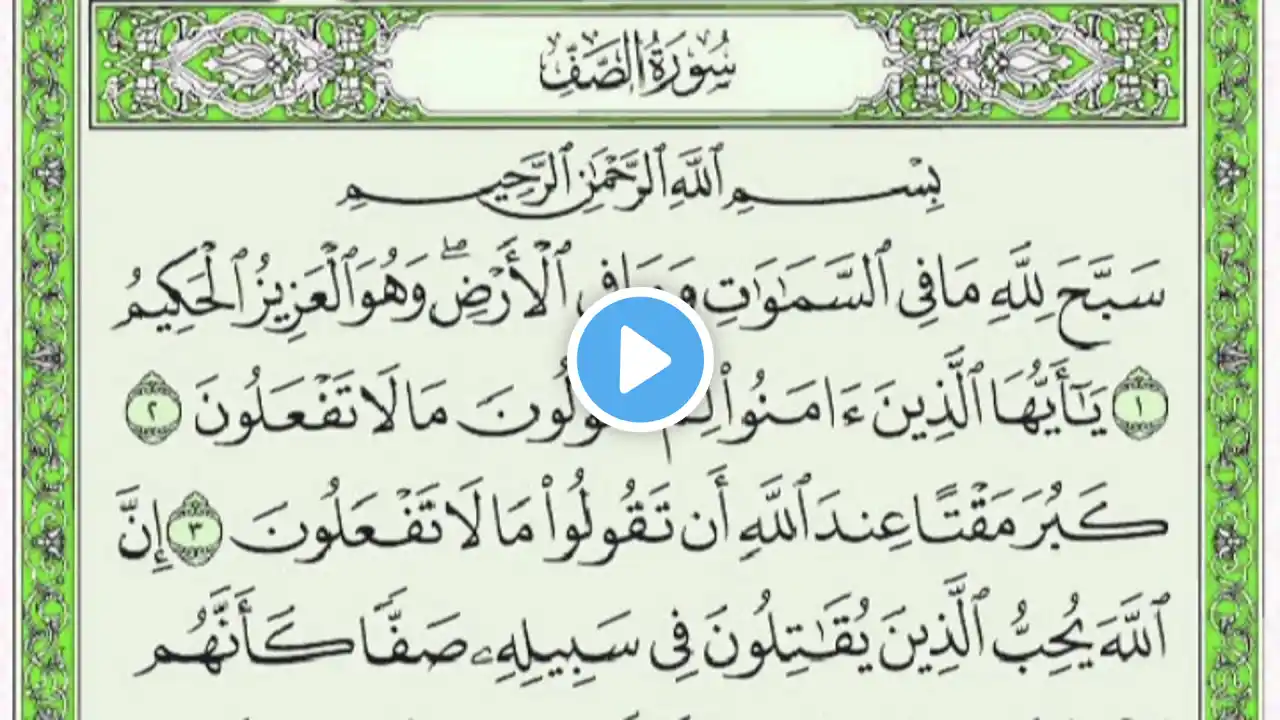 سُورَةُ الصَّفِّ
بِسْمِ ٱللَّهِ ٱلرَّحْمَٰنِ ٱلرَّحِيمِ
سَبَّحَ لِلَّهِ مَا فِى ٱلسَّمَٰوَٰتِ فِى ٱلْأَرْضِۖ وَهُوَ ٱلْعَزِيزُ ٱلْحَكِيمُ
١ يَٰٓأَيُّهَا ٱلَّذِينَ ءَامَنُوا۟ مَا لَا تَفْعَلُونَ ٢
كَبُرَ مَقْتًا عِندَ ٱللَّهِ أَن تَقُولُوا۟ مَا لَا تَفْعَلُونَ ٣ إِنَّ
ٱللَّهَ يُحِبُّ ٱلَّذِينَ يُقَٰتِلُونَ فِى سَبِيلِهِۦ صَفًّا كَأَنَّهُم